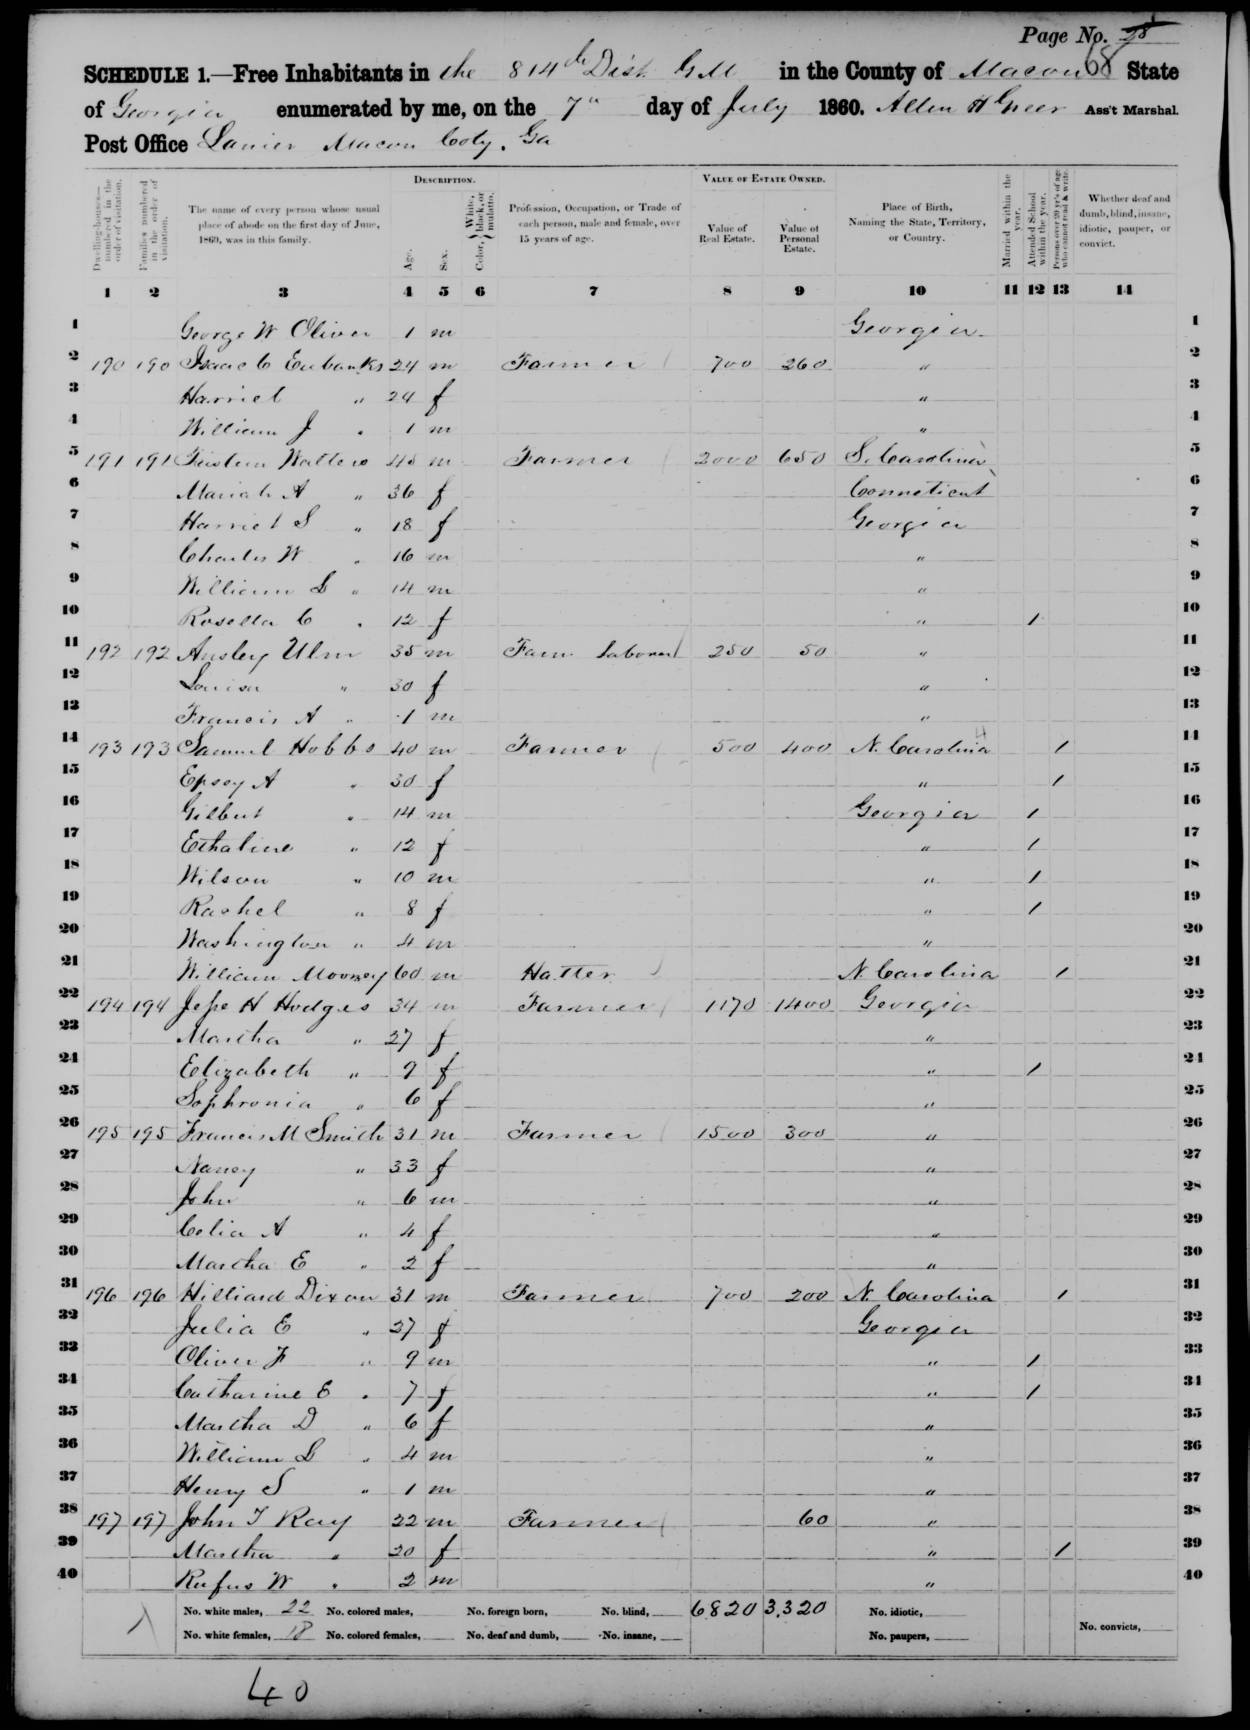 Page No. 28
68
SCHEDULE 1.—Free Inhabitants in the 814th Dist G M in the County of Macon State
of Georgia enumerated by me, on the 7" day of July 1860. Allen H Greer Ass't Marshal.
Post Office Lanier Macon Coty. Ga
DESCRIPTION. VALUE OF ESTATE OWNED.
Dwelling-houses—numbered in the order of visitation. Families numbered in the order of visitation. The name of every person whose usual place of abode on the first day of June, 1860, was in this family. Age. Sex. Color, White, black, or mulatto. Profession, Occupation, or Trade of each person, male and female, over 15 years of age. Value of Real Estate. Value of Personal Estate. Place of Birth, Naming the State, Territory, or Country. Married within the year. Attended School within the year. Persons over 20 y'rs of age who cannot read & write. Whether deaf and dumb, blind, insane, idiotic, pauper, or convict.
1 2 3 4 5 6 7 8 9 10 11 12 13 14
1 George W Oliver 1 m Georgia 1
2 190 190 Isaac C Eubanks 24 m Farmer 700 260 " 2
3 Harriet " 24 f " 3
4 William J " 1 m " 4
5 191 191 Walters 45 m Farmer 2000 650 S. Carolina 5
6 Mariah A " 36 f Conneticut 6
7 Harriet S " 18 f Georgia 7
8 Charles W " 16 m " 8
9 William L " 14 m " 9
10 Rosella C " 12 f " 1 10
11 192 192 Ansley Ulm 35 m Farm Laborer 250 50 " 11
12 Louisa " 30 f " 12
13 Francis A " 1 m " 13
14 193 193 Samuel Hobbs 40 m Farmer 500 400 N. Carolina 1 14
15 Epsey A " 30 f " 1 15
16 Gilbert " 14 m Georgia 1 16
17 Ethaline " 12 f " 1 17
18 Wilson " 10 m " 1 18
19 Rashel " 8 f " 1 19
20 Washington " 4 m " 20
21 William Moonney 60 m Hatter N. Carolina 1 21
22 194 194 Jesse H Hodges 34 m Farmer 1170 1400 Georgia 22
23 Martha " 27 f " 23
24 Elizabeth " 9 f " 1 24
25 Sophronia " 6 f " 25
26 195 195 Francis M Smith 31 m Farmer 1500 300 " 26
27 Nancy " 33 f " 27
28 John " 6 m " 28
29 Celia A " 4 f " 29
30 Martha E " 2 f " 30
31 196 196 Hilliard Dixon 31 m Farmer 700 200 N. Carolina 1 31
32 Julia E " 27 f Georgia 32
33 Oliver F " 9 m " 1 33
34 Catharine E " 7 f " 1 34
35 Martha D " 6 f " 35
36 William L " 4 m " 36
37 Henry S " 1 m " 37
38 197 197 John T Ray 22 m Farmer 60 " 38
39 Martha " 20 f " 1 39
40 Rufus W " 2 m " 40
No. white males, 22 No. colored males, No. foreign born, No. blind, 6820 3,320 No. idiotic,
No. white females, 18 No. colored females, No. deaf and dumb, No. insane, No. paupers, No. convicts,
40